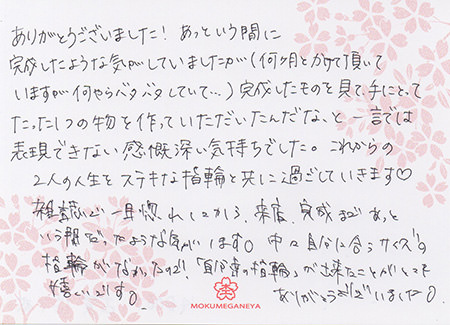 ありがとうございました! あっという間に
完成したような気がしていましたが(何ヶ月とかけて頂いて
いますが何やらバタバタしていて…)完成したものを見て、手にとって
たった1つの物を作っていただいたんだな、と一言では
表現できない感慨深い気持ちでした。これからの
2人の人生をステキな指輪と共に過ごしていきます♡
雑誌で一目惚れしてから、来店、完成まであっと
いう間だったような気がします。中々自分に合うサイズの
指輪がなかったので、「自分達の指輪」が出来たことがとても
嬉しいです。 ありがとうございました。
MOKUMEGANEYA